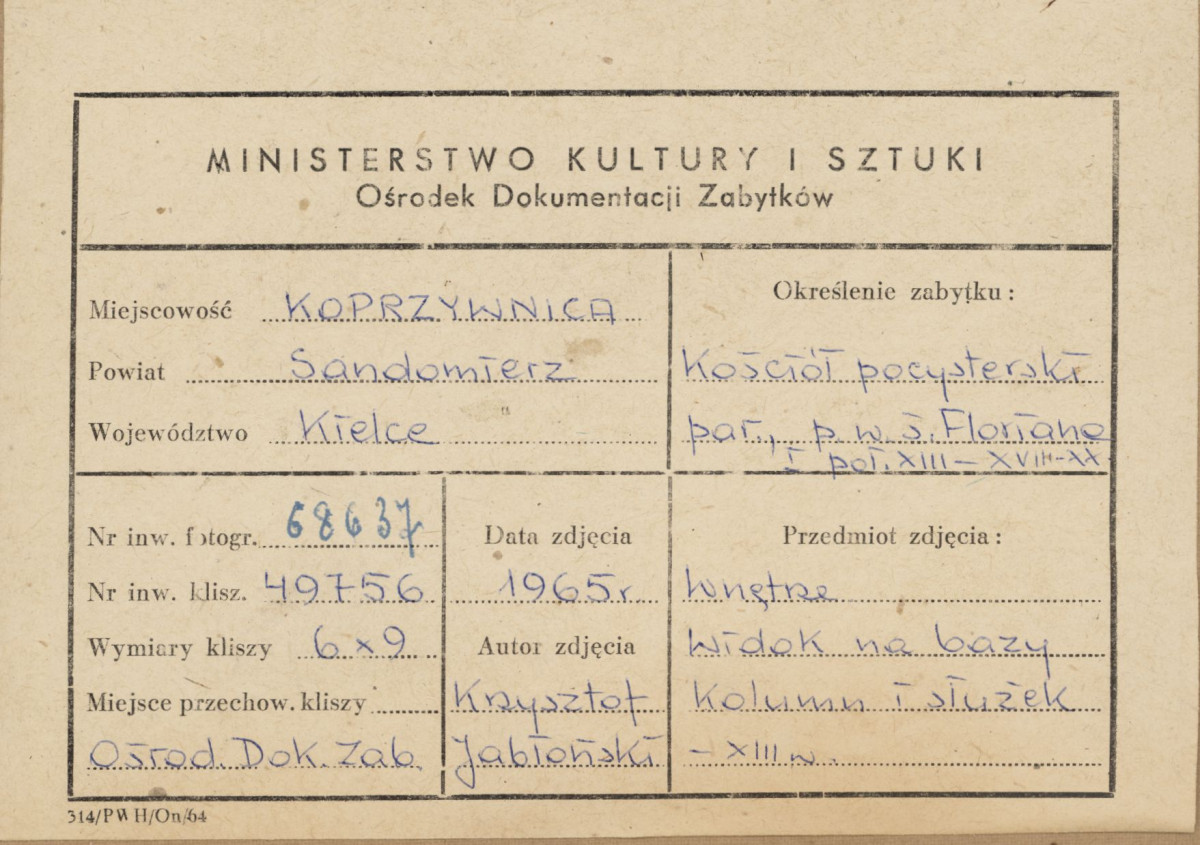 MINISTERSTWO KULTURY I SZTUKI
Ośrodek Dokumentacji Zabytków
Miejscowość KOPRZYWNICA
Powiat Sandomierz
Województwo Kielce
Określenie zabytku:
Kościół pocysterski
par., p.w. ś. Floriana
I poł. XIII – XVIII-XX
Nr inw. fotogr. 68637
Nr inw. klisz. 49756
Wymiary kliszy 6x9
Miejsce przechow. kliszy
Ośrod. Dok. Zab.
Data zdjęcia
1965r.
Autor zdjęcia
Krzysztof
Jabłoński
Przedmiot zdjęcia:
Wnętrze
Widok na bazy
kolumn i służek
– XIII w.
314/PWH/On/64